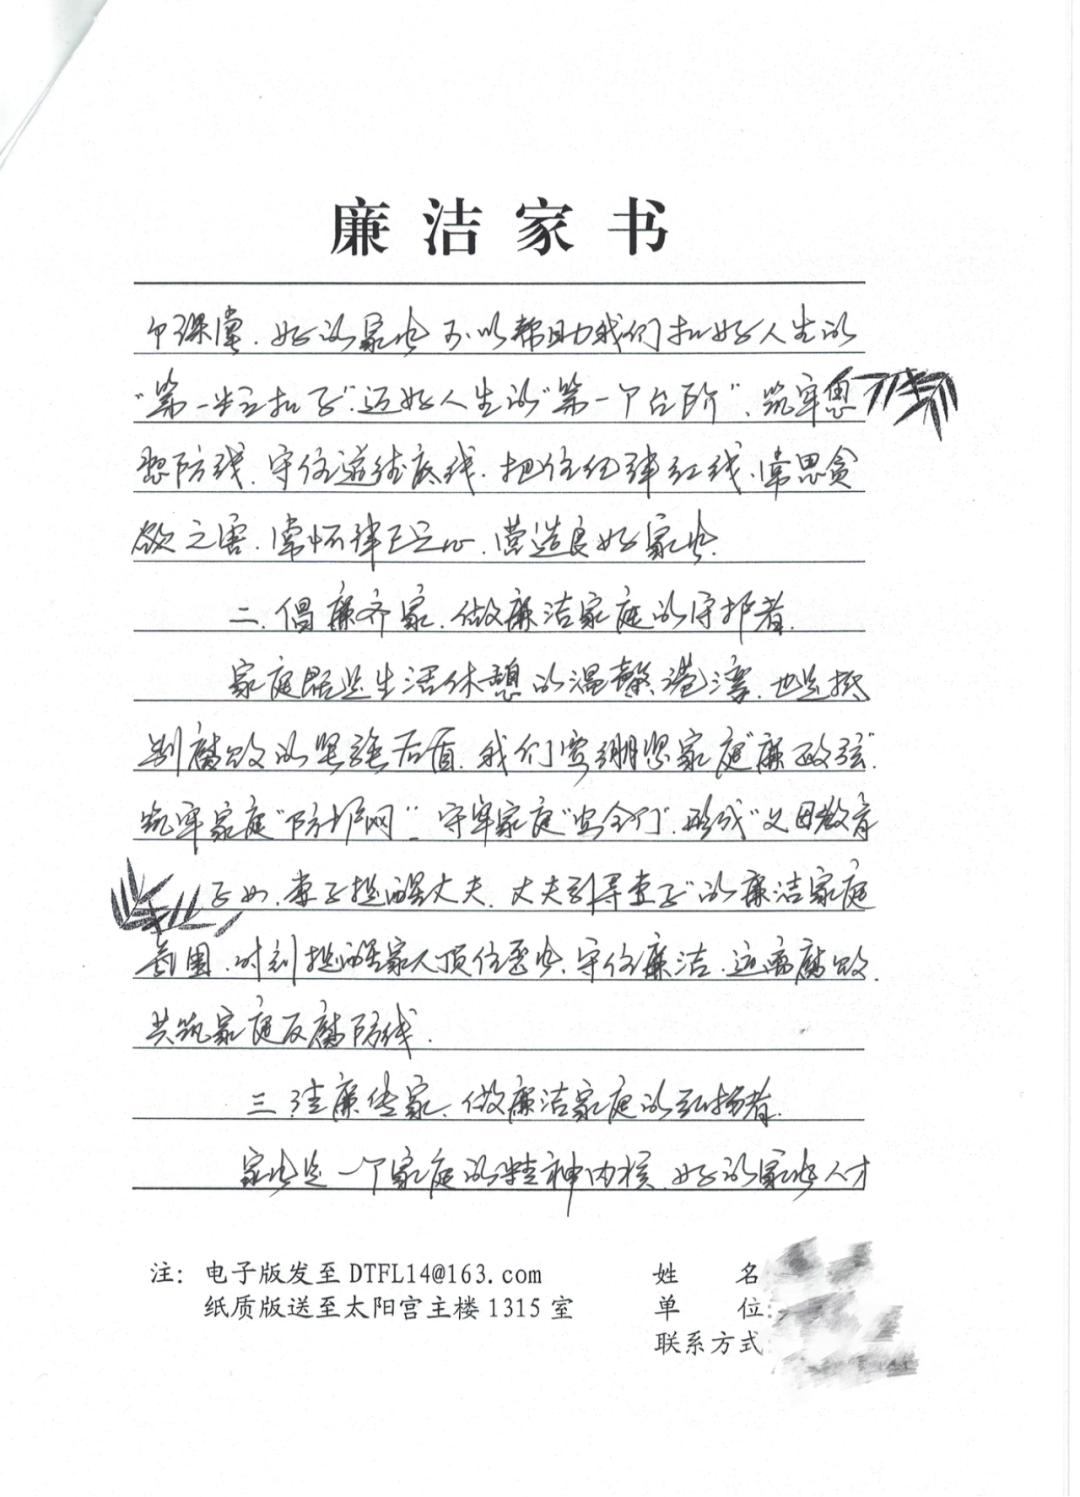 廉洁家书
个课堂.好的家风可以帮助我们扣好人生的
“第一粒扣子”.迈好人生的“第一个台阶”.筑牢思
想防线.守住道德底线.把住纪律红线.常思贪
欲之害.常怀律己之心.营造良好家风.
二.倡廉齐家.做廉洁家庭的守护者.
家庭既是生活休憩的温馨港湾.也是抵
制腐败的坚强后盾.我们要绷紧家庭“廉政弦”.
筑牢家庭“防护网”.守牢家庭“安全门”.形成“父母教育
子女.妻子提醒丈夫.丈夫引导妻子”的廉洁家庭
氛围.时刻提醒家人顶住歪风.守住廉洁.远离腐败.
共筑家庭反腐防线.
三.让廉传家.做廉洁家庭的弘扬者.
家风是一个家庭的精神内核.好的家风人才
注：电子版发至 DTFL14@163.com
纸质版送至太阳宫主楼 1315 室
姓 名
单 位:
联系方式: